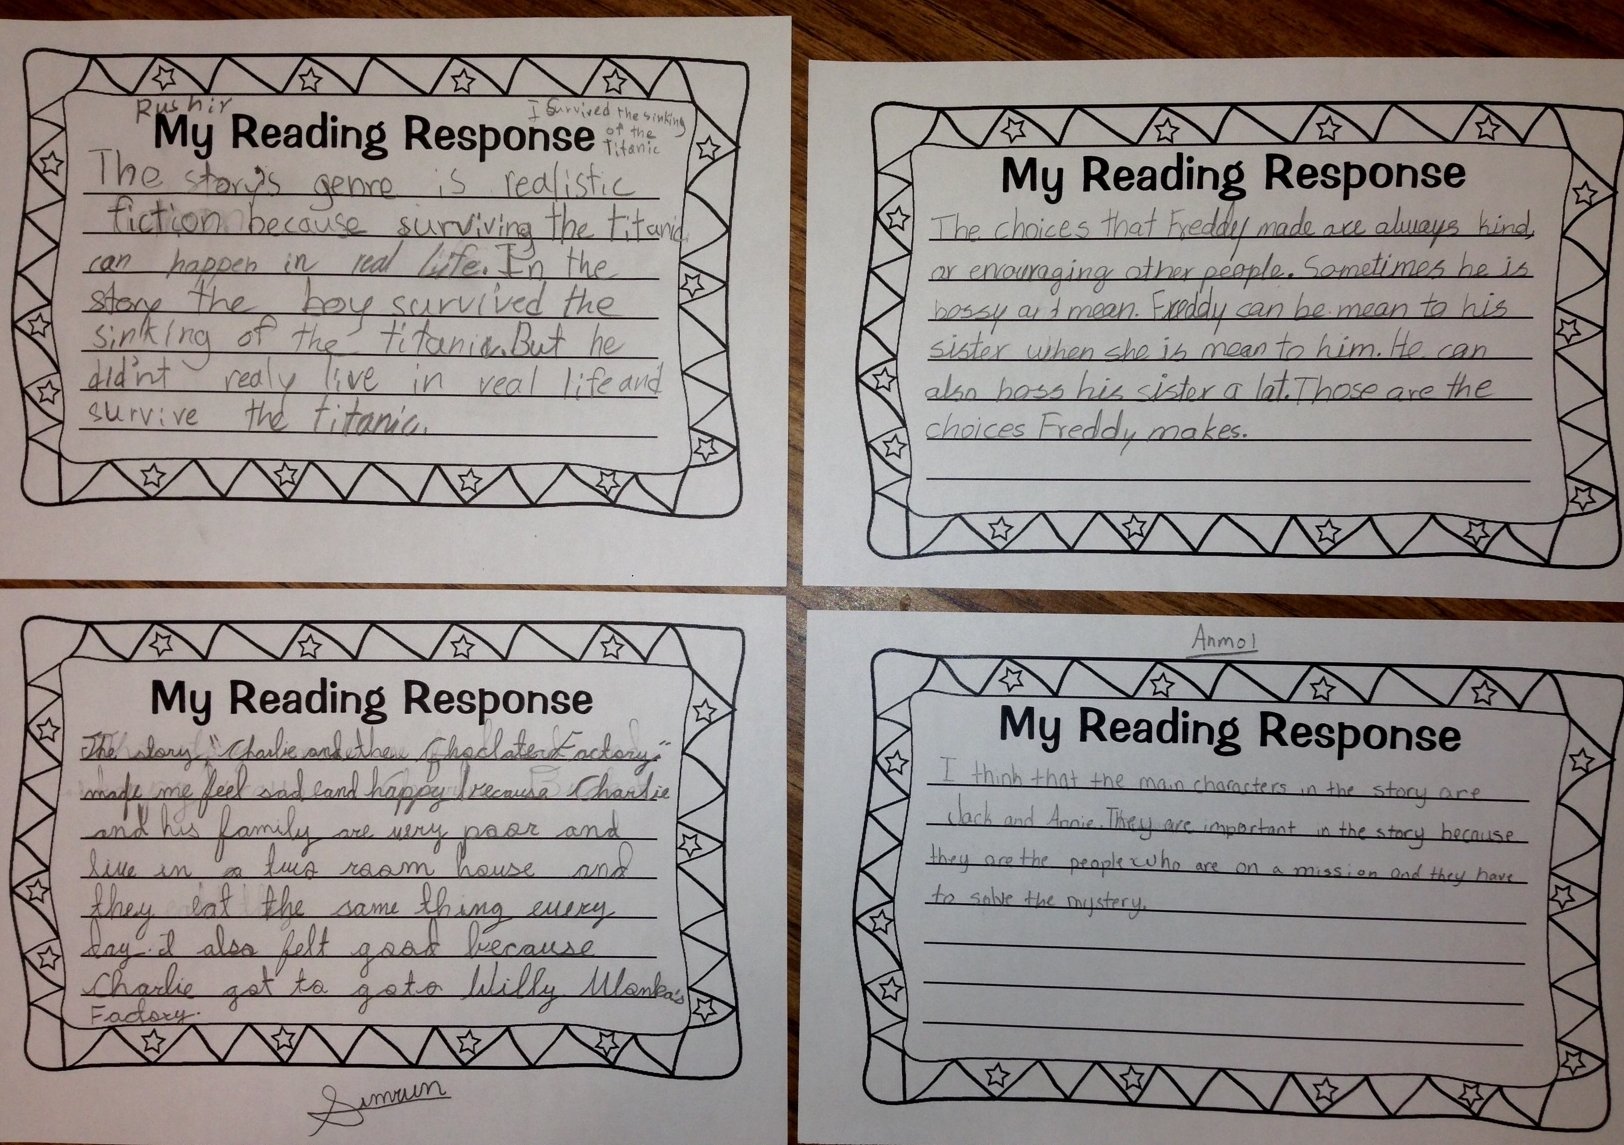 Rushir
I Survived the sinking
of the
Titanic
My Reading Response
The story's genre is realistic
fiction because surviving the titanic
can happen in real life. In the
story the boy survived the
sinking of the titanic. But he
did'nt realy live in real life and
survive the titanic.
My Reading Response
The choices that Freddy made are always kind,
or encouraging other people. Sometimes he is
bossy and mean. Freddy can be mean to his
sister when she is mean to him. He can
also boss his sister a lot. Those are the
choices Freddy makes.
My Reading Response
The story, "Charlie and the Choclate Factory"
made me feel sad and happy because Charlie
and his family are very poor and
live in a two room house and
they eat the same thing every
day. I also felt good because
Charlie got to goto Willy Wonka's
Factory.
Simrun
Anmol
My Reading Response
I think that the main characters in the story are
Jack and Annie. They are important in the story because
they are the people who are on a mission and they have
to solve the mystery.